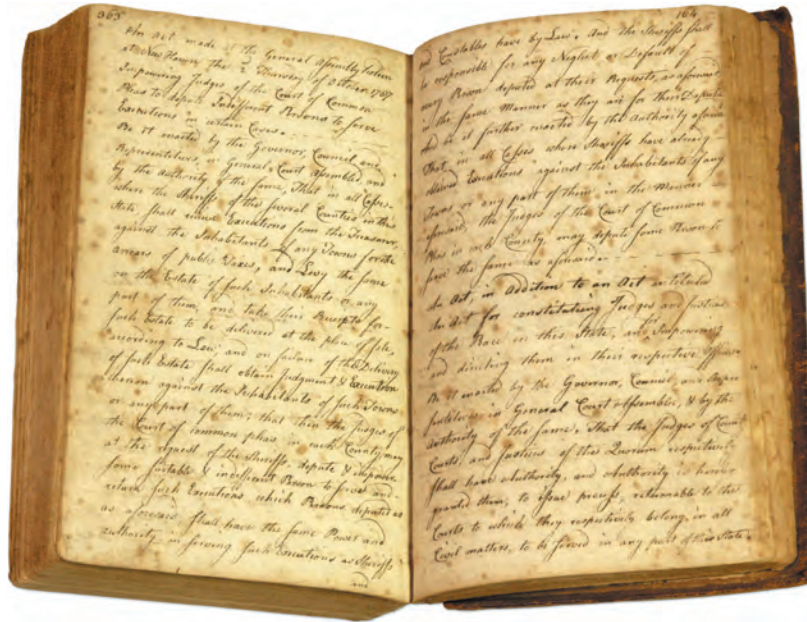 363
An Act made at the General Assembly holden
at New Haven the 2d Thursday of October 1787
Impowring Judges of the Court of Common
Pleas to depute Indifferent Persons to serve
Executions in certain Cases.
Be it enacted by the Governor, Council and
Representatives, in General Court Assembled, and
by the Authority of the same, That in all Cases
where the Sheriffs of the several Counties in this
State, shall receive Executions from the Treasurer,
against the Inhabitants of any Towns for the
arrears of public Taxes, and Levy the same
on the Estate of such Inhabitants or any
part of them, and take their Receipts for
such Estate to be delivered at the place of sale,
according to Law; and on failure of the Delivery
of such Estate shall obtain Judgment & Execution
thereon against the Inhabitants of such Towns
or any part of them; that then the Judges of
the Court of common pleas in each County may
at the request of the Sheriffs, depute & impower
some suitable & indifferent Person to serve and
return such Executions, which Persons deputed as
as aforesaid shall have the same Power and
authority in serving such Executions as Sheriffs
and
164
and Constables have by Law. And the Sheriffs shall
be responsible for any Neglect or Default of
every Person deputed at their Requests, as aforesaid
in the same Manner as they are for their Deputies
And be it further enacted by the Authority aforesaid
That in all Cases where Sheriffs have already
obtained Executions against the Inhabitants of any
Town or any part of them in the Manner
aforesaid, the Judges of the Court of Common
Pleas in each County, may depute some Person to
serve the same as aforesaid.
An Act, in Addition to an Act entituled
An Act for constituting Judges and Justices
of the Peace in this State, and Impowering
and directing them in their respective Offices
Be it enacted by the Governor, Council, and Repre
sentatives in General Court Assembled, & by the
Authority of the same, That the Judges of County
Courts, and Justices of the Quorum respectively
shall have authority, and authority is hereby
granted them, to issue process, returnable to the
Courts to which they respectively belong, in all
Civil matters, to be served in any part of this State.